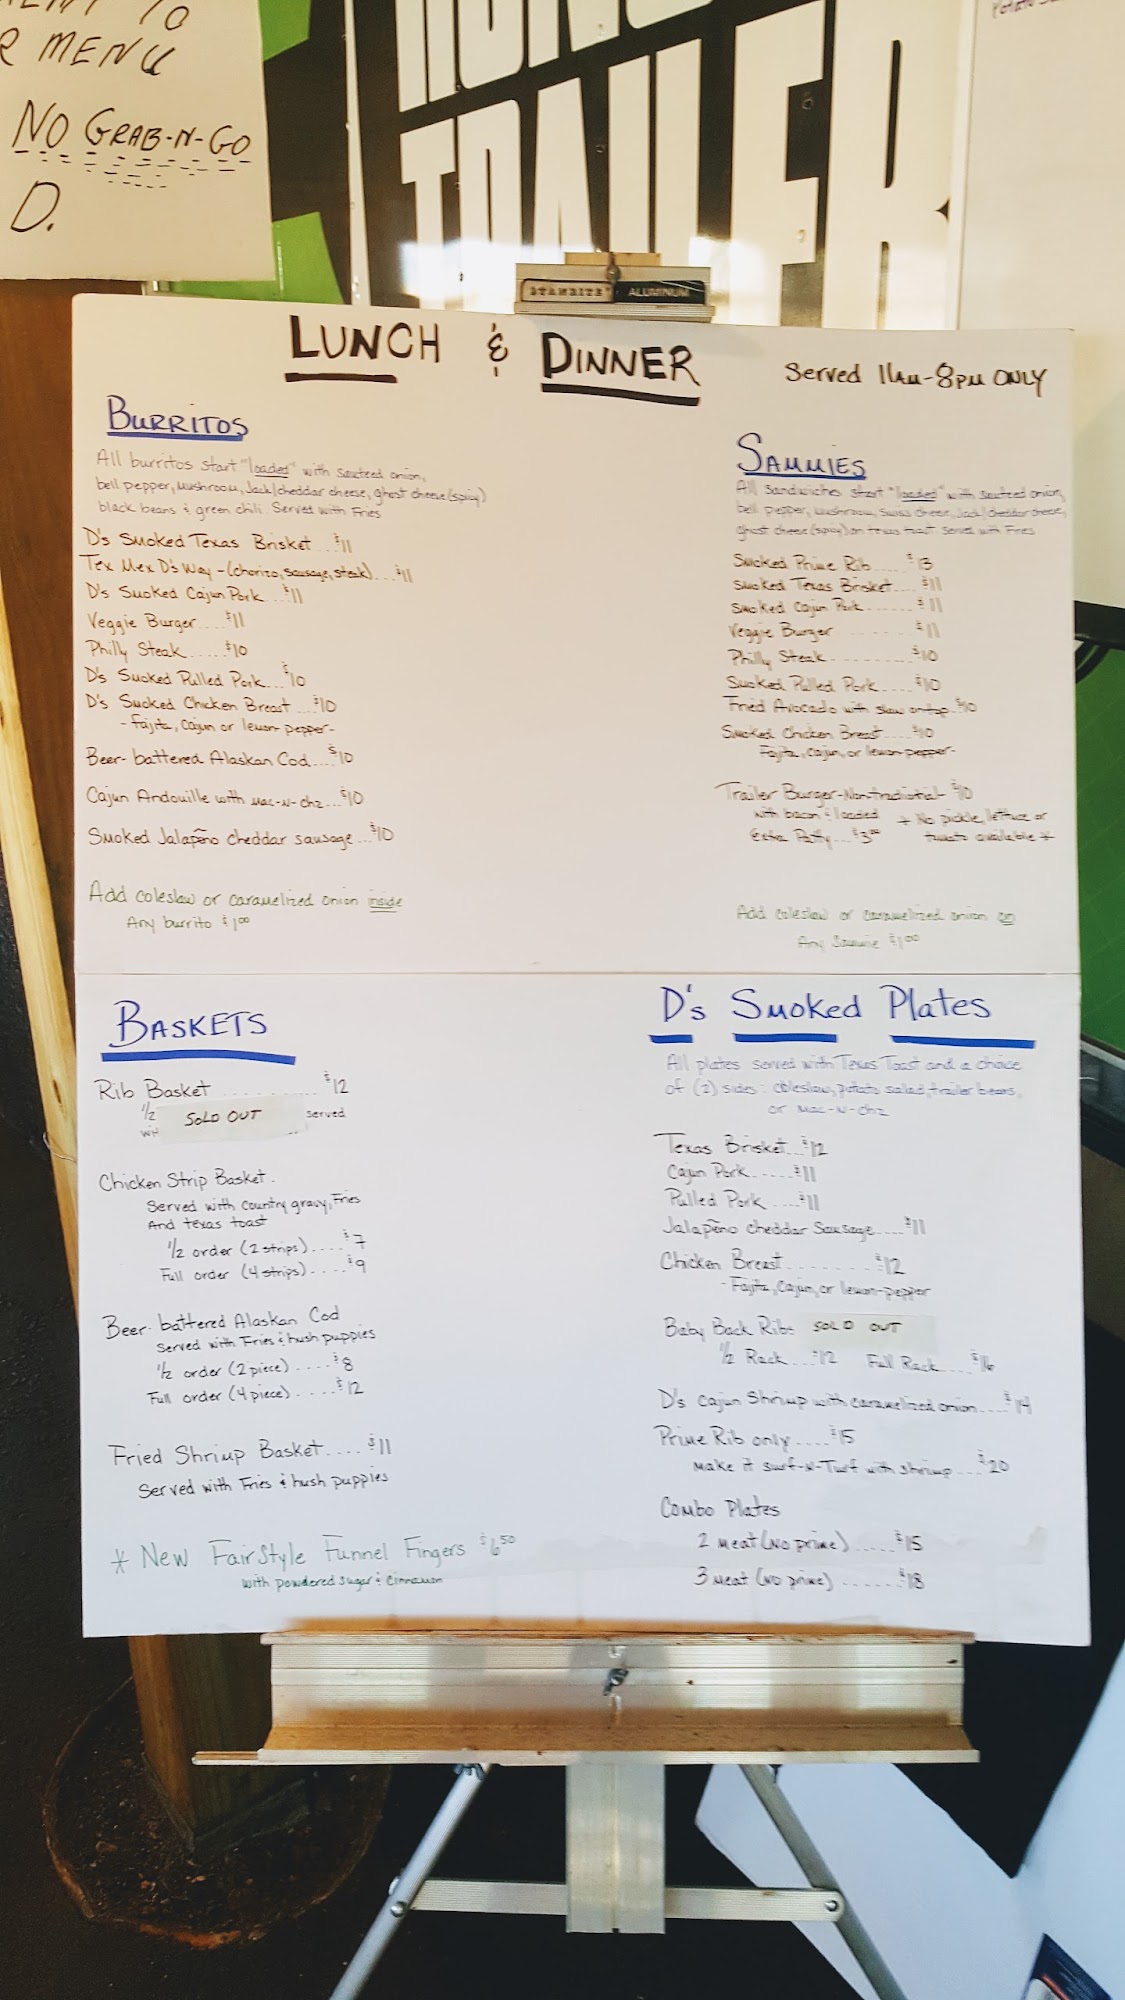 R MENU
NO GRAB-N-GO
D.
TRAILER
STANRITE ALUMINUM
LUNCH & DINNER
Served 11am-8pm ONLY
BURRITOS
All burritos start "loaded" with sauteed onion,
bell pepper, mushroom, Jack/cheddar cheese, ghost cheese (spicy)
black beans & green chili. Served with Fries
D's Smoked Texas Brisket...$11
Tex Mex D's Way-(chorizo, sausage, steak)...$11
D's Smoked Cajun Pork...$11
Veggie Burger....$11
Philly Steak......$10
D's Smoked Pulled Pork...$10
D's Smoked Chicken Breast...$10
-Fajita, Cajun or lemon-pepper-
Beer-battered Alaskan Cod....$10
Cajun Andouille with Mac-N-chz...$10
Smoked Jalapeño cheddar sausage...$10
Add coleslaw or caramelized onion inside
Any burrito $1.00
SAMMIES
All sandwiches start "loaded" with sauteed onion,
bell pepper, mushroom, Swiss cheese, Jack/cheddar cheese,
ghost cheese (spicy) on texas toast. Served with Fries
Smoked Prime Rib......$13
Smoked Texas Brisket....$11
Smoked Cajun Pork.......$11
Veggie Burger.......$11
Philly Steak.........$10
Smoked Pulled Pork....$10
Fried Avocado with slaw on top.$10
Smoked Chicken Breast....$10
Fajita, Cajun, or lemon-pepper-
Trailer Burger-Nontradiotial-$10
with bacon & loaded * No pickle, lettuce or
Extra Patty...$3.00 tomato available *
Add coleslaw or caramelized onion on
Any Sammie $1.00
BASKETS
Rib Basket..........$12
1/2 SOLD OUT served
Chicken Strip Basket.
Served with country gravy, Fries
And texas toast
1/2 order (2 strips)....$7
Full order (4 strips)....$9
Beer-battered Alaskan Cod
Served with Fries & hush puppies
1/2 order (2 piece)....$8
Full order (4 piece).....$12
Fried Shrimp Basket....$11
Served with Fries & hush puppies
* New Fair Style Funnel Fingers $6.50
with powdered sugar & Cinnamon
D's Smoked Plates
All plates served with Texas Toast and a choice
of (2) sides: coleslaw, potato salad, trailer beans,
or Mac-N-chz
Texas Brisket...$12
Cajun Pork.....$11
Pulled Pork....$11
Jalapeño cheddar Sausage....$11
Chicken Breast........$12
-Fajita, Cajun, or lemon-pepper
Baby Back Ribs SOLD OUT
1/2 Rack...$12 Full Rack....$16
D's Cajun Shrimp with caramelized onion....$14
Prime Rib only....$15
Make it Surf-N-Turf with shrimp...$20
Combo Plates
2 meat (No prime).....$15
3 meat (No prime).......$18